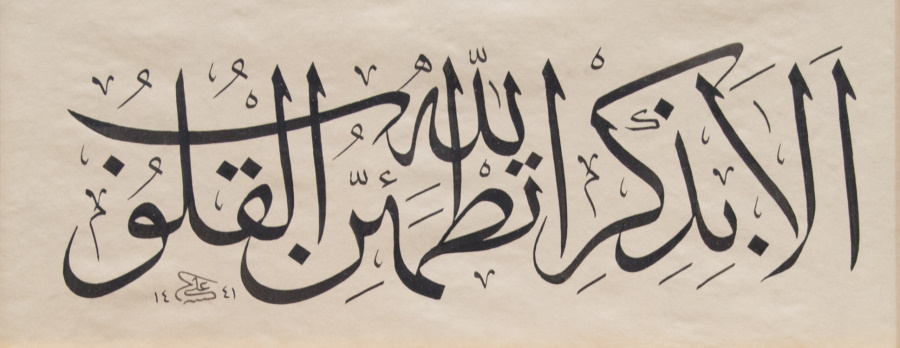 أَلَا بِذِكْرِ اللّٰهِ تَطْمَئِنُّ الْقُلُوبُ
علي ١٤٤١